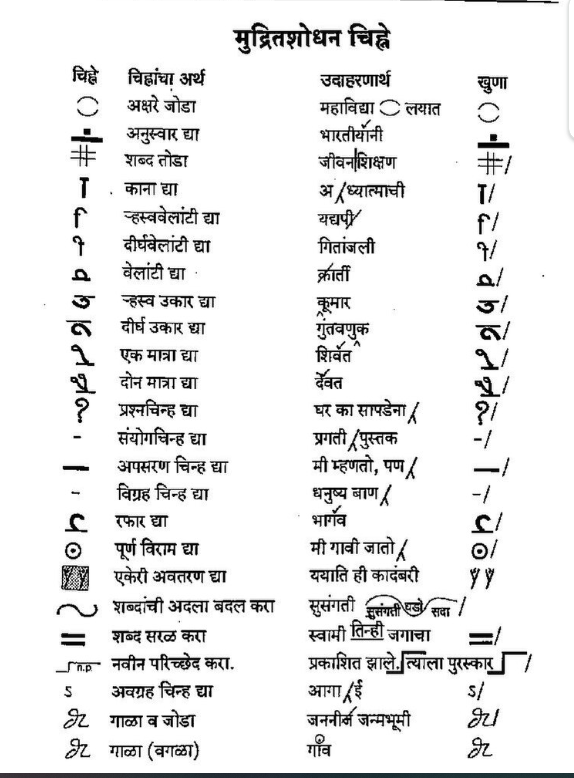 मुद्रितशोधन चिह्ने
चिह्ने चिह्नांचा अर्थ उदाहरणार्थ खुणा
अक्षरे जोडा महाविद्या लयात
अनुस्वार द्या भारतीयांनी
शब्द तोडा जीवन|शिक्षण
काना द्या अ / ध्यात्माची
ऱ्हस्ववेलांटी द्या यद्यपी
दीर्घवेलांटी द्या गितांजली
वेलांटी द्या
ऱ्हस्व उकार द्या कूमार
दीर्घ उकार द्या गुंतवणुक
एक मात्रा द्या
दोन मात्रा द्या
? प्रश्नचिन्ह द्या घर का सापडेना / ?/
- संयोगचिन्ह द्या प्रगती / पुस्तक -/
— अपसरण चिन्ह द्या मी म्हणतो, पण / —/
- विग्रह चिन्ह द्या धनुष्य बाण / -/
रफार द्या
⊙ पूर्ण विराम द्या मी गावी जातो / ⊙/
एकेरी अवतरण द्या ययाति ही कादंबरी
शब्दांची अदला बदल करा सुसंगती सुसंगती घडो सदा /
= शब्द सरळ करा स्वामी तिन्ही जगाचा =/
न.प. नवीन परिच्छेद करा. प्रकाशित झाले. त्याला पुरस्कार /
S अवग्रह चिन्ह द्या आगा / ई S/
गाळा व जोडा जन्मभूमी
गाळा (वगळा)